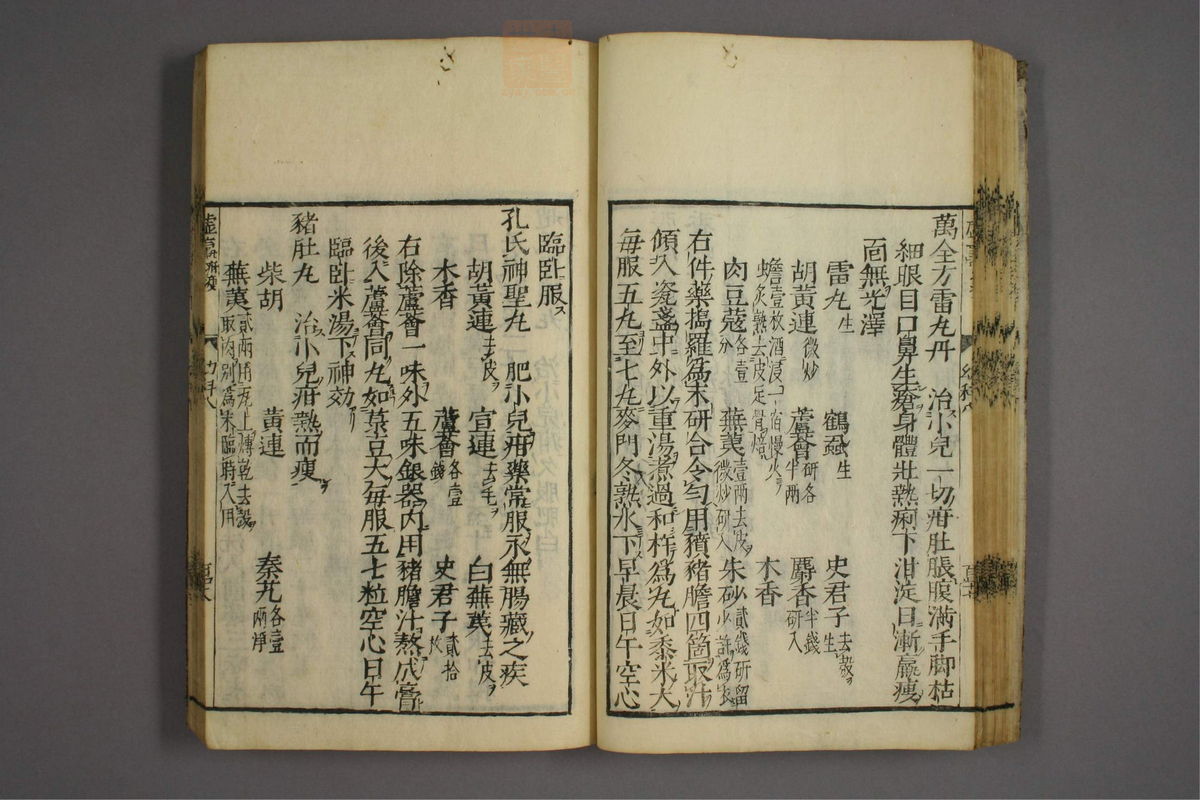 萬全方雷丸丹 治小兒一切疳肚脹腹滿手脚枯
細眼目口鼻生瘡身體壯熱痢下泔淀日漸羸瘦
面無光澤
雷丸生 鶴蝨生 史君子去殼生
胡黃連微炒 蘆薈研各半兩 麝香半錢研入
蟾壹枚酒浸一宿慢火炙熟去皮足骨焙 木香
肉豆蔻各壹分 蕪荑壹兩去皮微炒研入 朱砂貳錢研留少許爲衣
右件藥搗羅爲末研合令勻用豶猪膽四箇取汁
傾入瓷盞中外以重湯煮過和杵爲丸如黍米大
每服五丸至七丸麥門冬熟水下早晨日午空心
臨臥服
孔氏神聖丸 肥小兒疳藥常服永無腸藏之疾
胡黃連去皮 宣連去毛 白蕪荑去皮
木香 蘆薈各壹錢 史君子貳拾枚
右除蘆薈一味外五味銀器内用豬膽汁熬成膏
後入蘆薈同丸如菉豆大每服五七粒空心日午
臨臥米湯下神効
豬肚丸 治小兒疳熱而瘦
柴胡 黃連 秦艽各壹兩淨
蕪荑貳兩用瓦上煿乾去殼取肉別爲末臨時入用